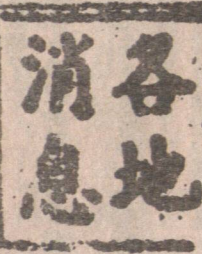 各地
消息